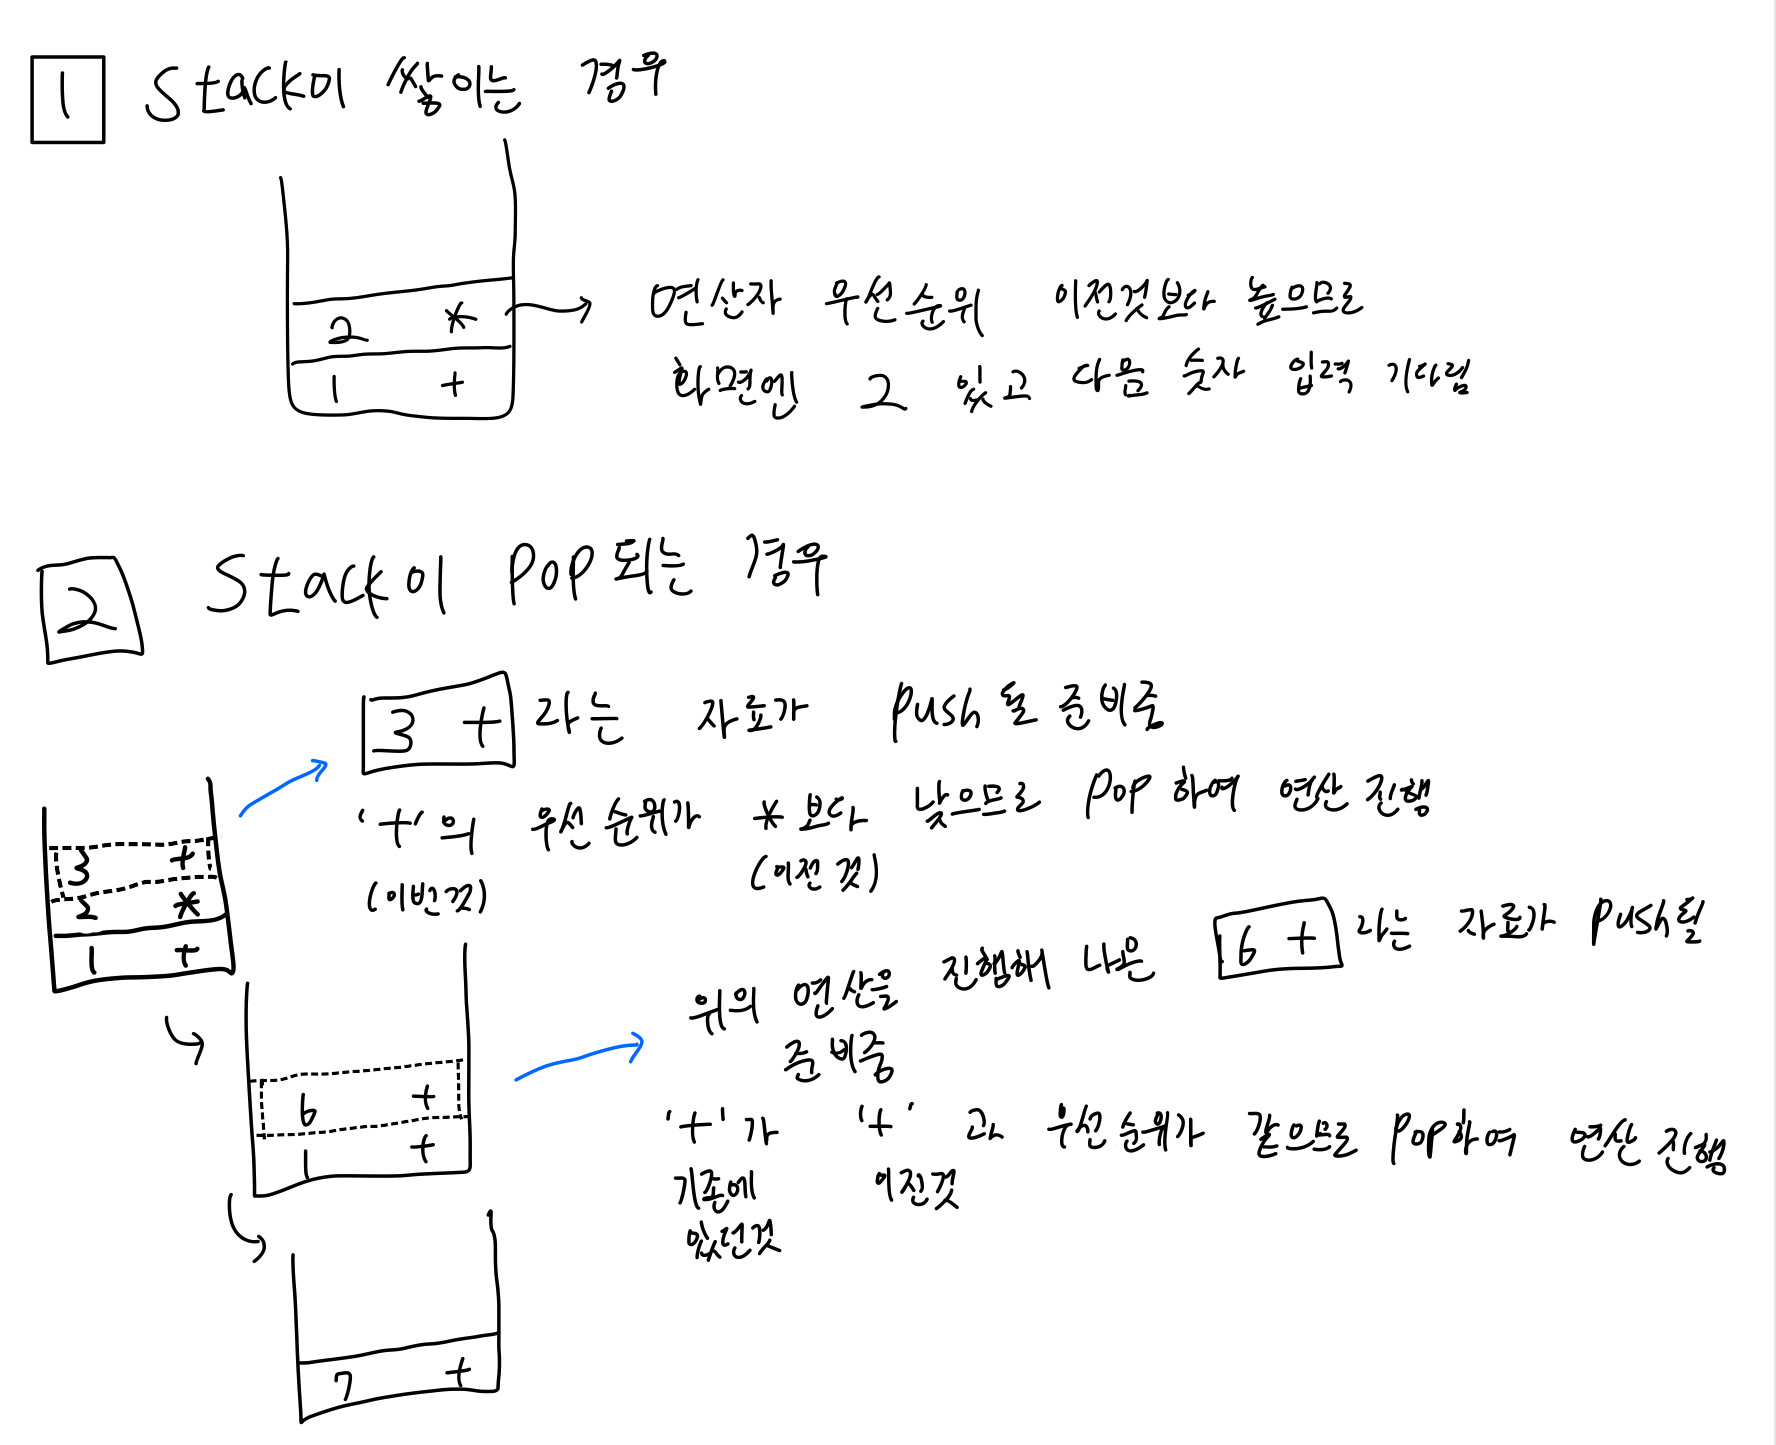 1 Stack이 쌓이는 경우
2 *
1 +
연산자 우선순위 이전것보다 높으므로
화면엔 2 있고 다음 숫자 입력 기다림
2 Stack이 Pop되는 경우
3 + 라는 자료가 Push 될 준비중
'+'의 우선순위가 * 보다 낮으므로 Pop 하여 연산 진행
(이번것) (이전 것)
3 +
2 *
1 +
위의 연산을 진행해 나온 6 + 라는 자료가 Push될
준비중
6 +
1 +
'+'가 '+' 과 우선순위가 같으므로 Pop하여 연산 진행
기존에 이전것
있던것
7 +